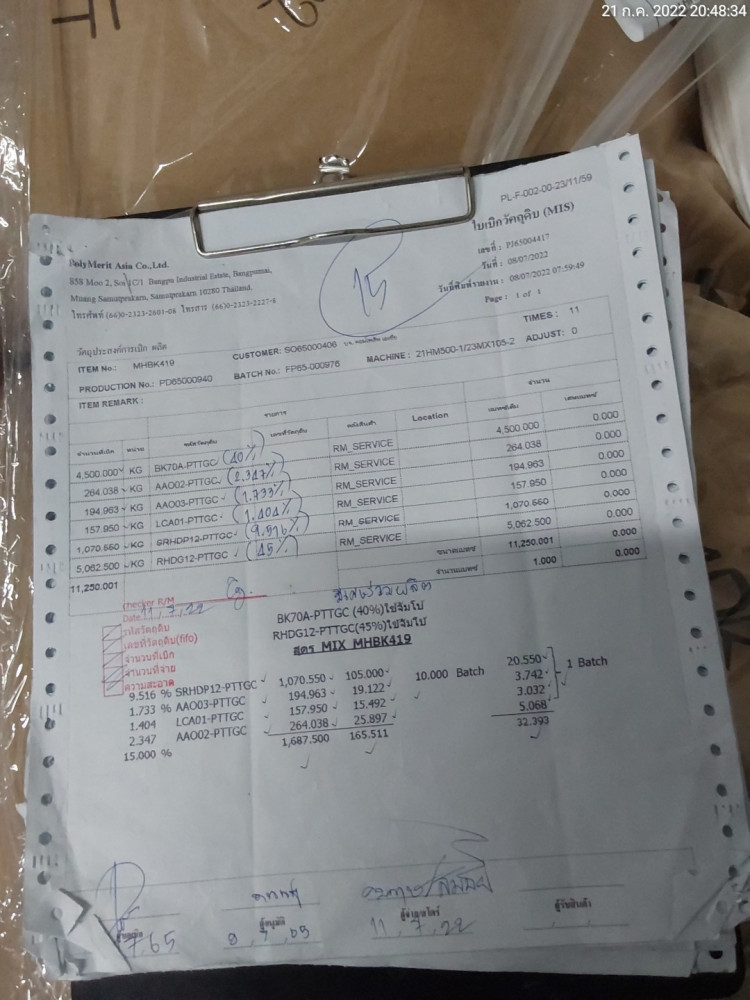 21 ก.ค. 2022 20:48:34
PL-F-002-00-23/11/59
ใบเบิกวัตถุดิบ (MIS)
PolyMerit Asia Co.,Ltd.
เลขที่ : PJ65004417
858 Moo 2, Soi 1C/1 Bangpu Industrial Estete, Bangpumai,
วันที่ : 08/07/2022
Muang Samutprakarn, Samutprakarn 10280 Thailand.
วันที่พิมพ์รายงาน : 08/07/2022 07:59:49
โทรศัพท์ (66)0-2323-2601-08 โทรสาร (66)0-2323-2227-8
Page : 1 of 1
15
วัตถุประสงค์การเบิก ผลิต
ITEM No.: MHBK419 CUSTOMER: SO65000406 TIMES : 11
PRODUCTION No.: PD65000940 BATCH No.: FP65-000976 MACHINE : 21HM500-1/23MX105-2 ADJUST: 0
ITEM REMARK :
รายการ จำนวน
จำนวนที่เบิก หน่วย รหัสวัตถุดิบ เลขที่วัตถุดิบ คลังสินค้า Location แบทช์เต็ม เศษแบทช์
4,500.000 KG BK70A-PTTGC (40%) RM_SERVICE 4,500.000 0.000
264.038 KG AAO02-PTTGC (2.347%) RM_SERVICE 264.038 0.000
194.963 KG AAO03-PTTGC (1.733%) RM_SERVICE 194.963 0.000
157.950 KG LCA01-PTTGC (1.404%) RM_SERVICE 157.950 0.000
1,070.550 KG SRHDP12-PTTGC (9.516%) RM_SERVICE 1,070.550 0.000
5,062.500 KG RHDG12-PTTGC (45%) RM_SERVICE 5,062.500 0.000
11,250.001 ขนาดแบทช์ 11,250.001 0.000
จำนวนแบทช์ 1.000 0.000
checker R/M
Date 11,7,22
รหัสวัตถุดิบ
เลขที่วัตถุดิบ(fifo)
จำนวนที่เบิก
จำนวนที่จ่าย
ความสะอาด
BK70A-PTTGC (40%)ใช้จัมโบ้
RHDG12-PTTGC(45%)ใช้จัมโบ้
สูตร MIX MHBK419
9.516 % SRHDP12-PTTGC 1,070.550 105.000 10.000 Batch 20.550 1 Batch
1.733 % AAO03-PTTGC 194.963 19.122 3.742
1.404 LCA01-PTTGC 157.950 15.492 3.032
2.347 AAO02-PTTGC 264.038 25.897 5.068
15.000 % 1,687.500 165.511 32.393
ผู้อนุมัติ ผู้จ่ายสโตร์ ผู้รับสินค้า
7,65 8,7,65 11,7,22